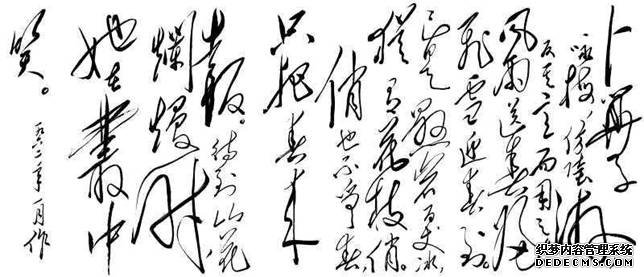 卜算子
咏梅。仿陆游
反其意而用之
风雨送春归
飞雪迎春到。
已是悬岩百丈冰,
犹有花枝俏。
俏也不争春,
只把春来
報。待到山花
爛熳时
她在叢中
笑。
年 月作
织梦内容管理系统
DEDECMS.COM